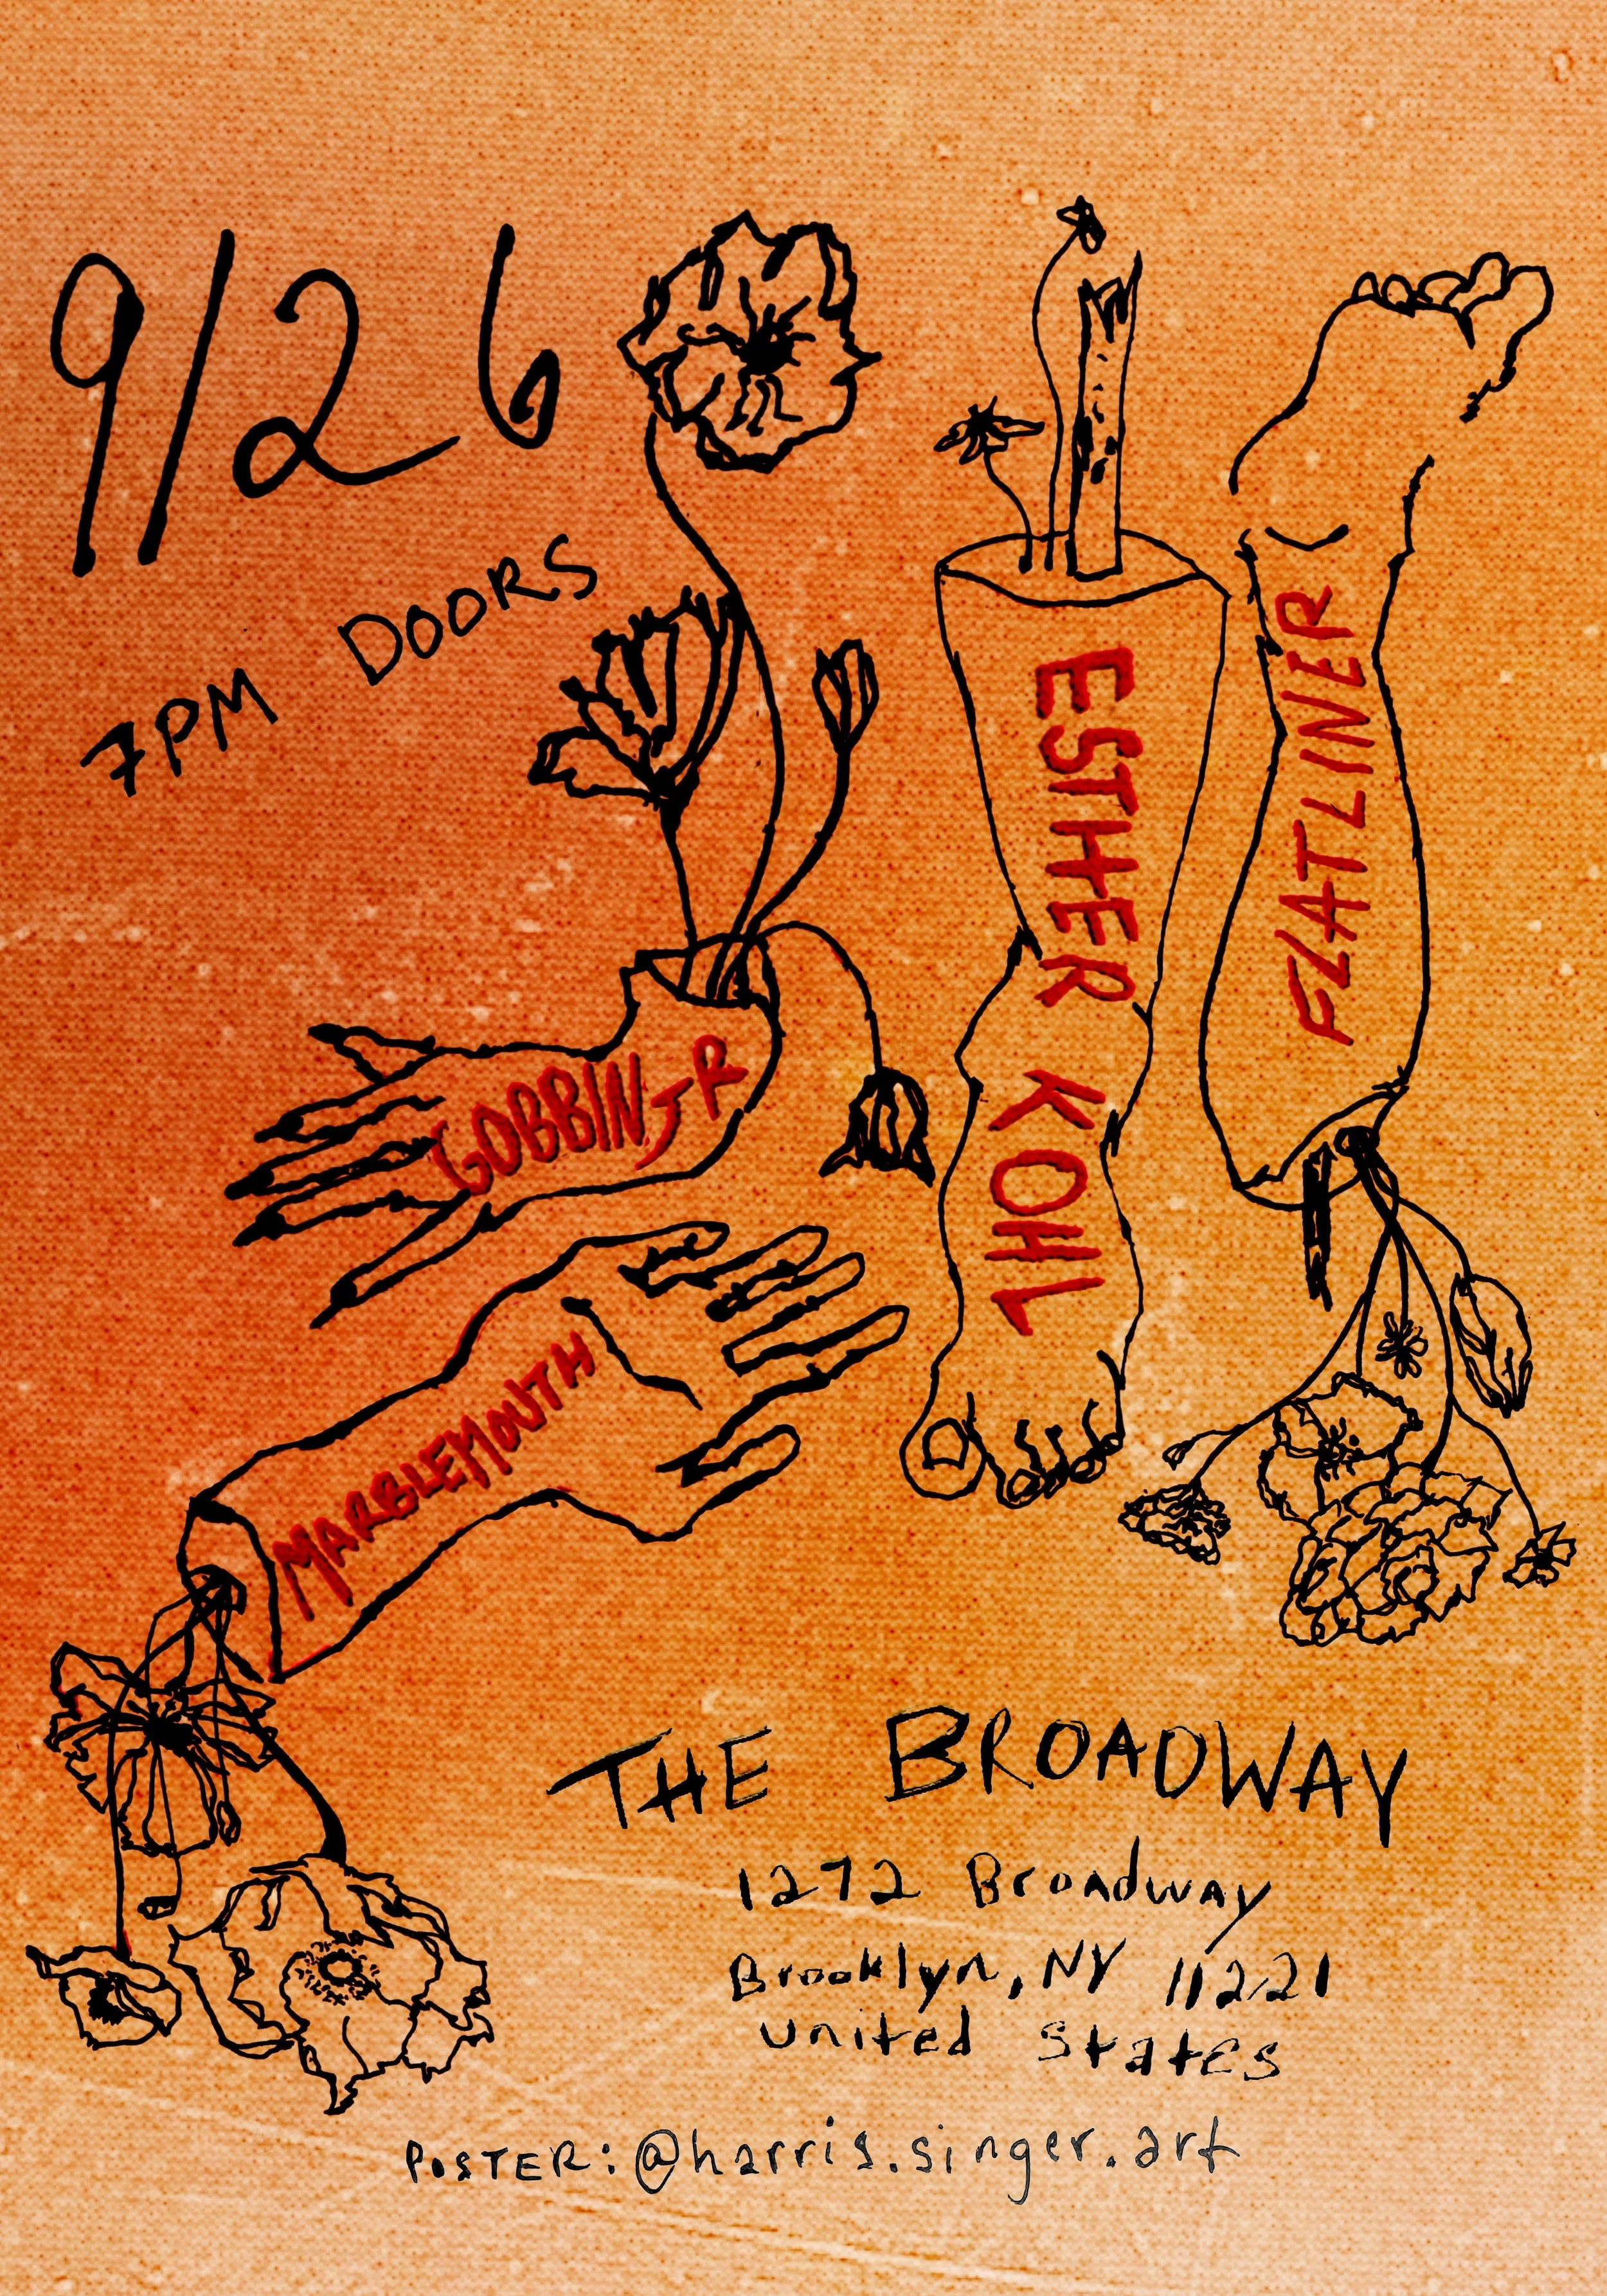 9/26
7PM DOORS
GOBBINJR
ESTHER KOHL
FLATLINER
MARBLEMOUTH
THE BROADWAY
1272 Broadway
Brooklyn, NY 11221
United States
POSTER: @harris.singer.art